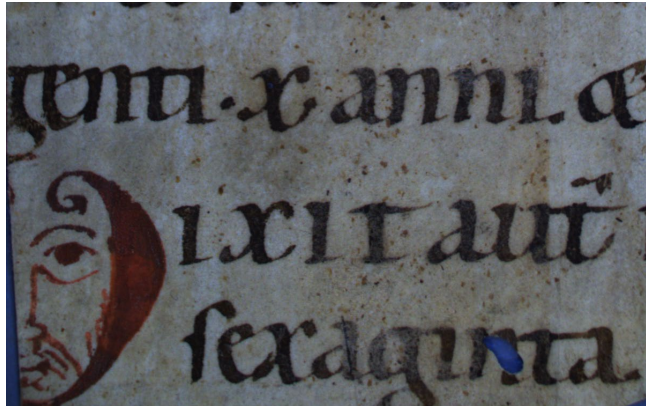 genti · x anni. æ
Dixit aut̄
sexaginta.